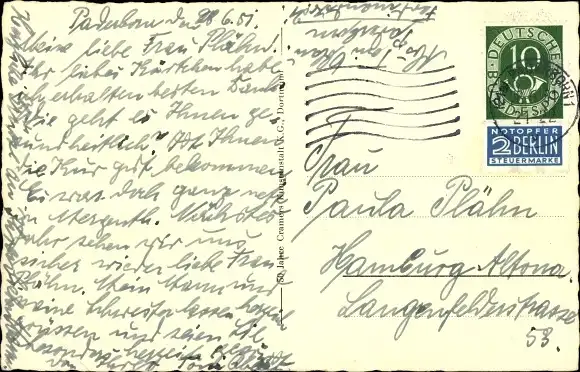 Paderborn den 28.6.51.
Meine liebe Frau Plähn.
Ihr liebes Kärtchen habe
erhalten besten Dank
Wie geht es Ihnen ge-
sundheitlich? Ist Ihnen
die Kur gut bekommen
Es war doch ganz nett
in Mergenth. Nächstes
Jahr sehen wir uns
sicher wieder liebe Frau
Plähn. Mein Mann und
meine Schwester lassen herzlich
grüssen und seien Sie
besonders herzlich
von
50 Jahre Cramers Kunstanstalt K.G., Dortmund
DEUTSCHE
BUNDESPOST
10
NOTOPFER
2 BERLIN
STEUERMARKE
Frau
Paula Plähn
Hamburg Altona.
Langenfelderstrasse
53.